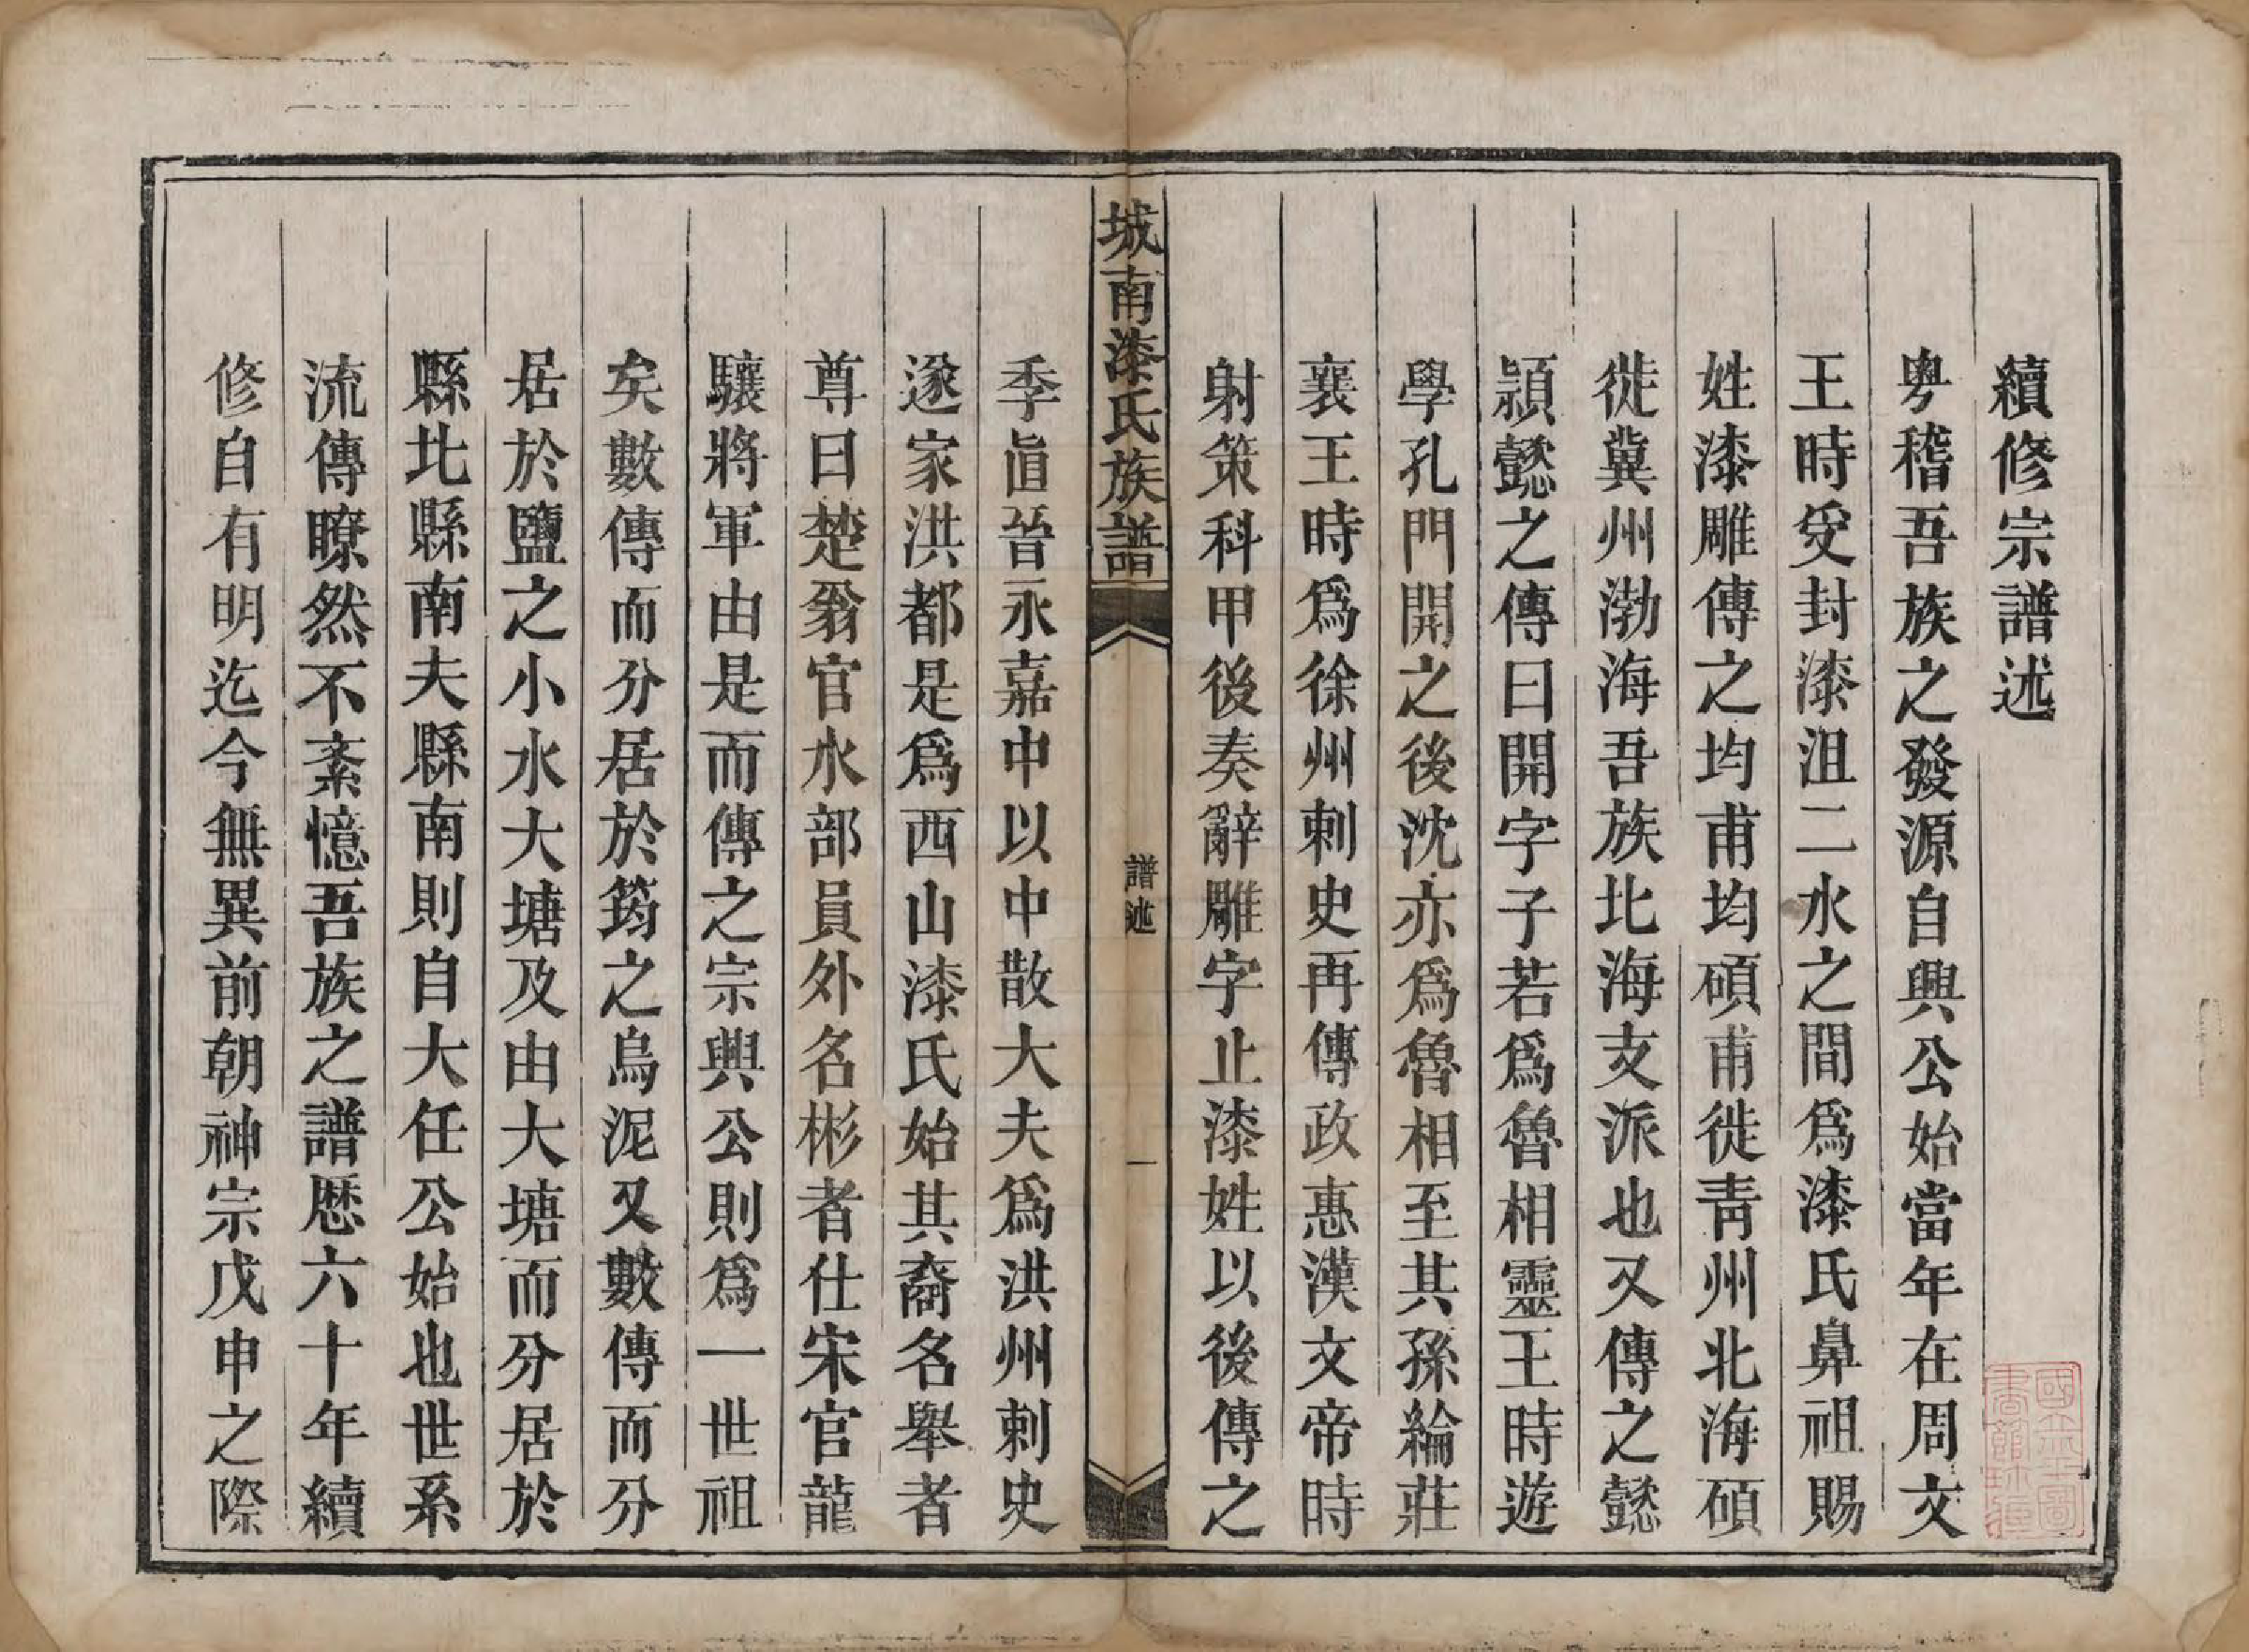 續修宗譜述
粵稽吾族之發源自興公始當年在周文
王時受封漆沮二水之間爲漆氏鼻祖賜
姓漆雕傳之均甫均碩甫徙青州北海碩
徙冀州渤海吾族北海支派也又傳之懿
頴懿之傳曰開字子若爲魯相靈王時遊
學孔門開之後沈亦爲魯相至其孫綸莊
襄王時爲徐州刺史再傳政惠漢文帝時
射策科甲後奏辭雕字止漆姓以後傳之
城南漆氏族譜
譜述
一
季眞晉永嘉中以中散大夫爲洪州刺史
遂家洪都是爲西山漆氏始其裔名舉者
尊曰楚翁官水部員外名彬者仕宋官龍
驤將軍由是而傳之宗興公則爲一世祖
矣數傳而分居於筠之烏泥又數傳而分
居於鹽之小水大塘及由大塘而分居於
縣北縣南夫縣南則自大任公始也世系
流傳瞭然不紊憶吾族之譜歷六十年續
修自有明迄今無異前朝神宗戊申之際
國立北平圖
書館收藏